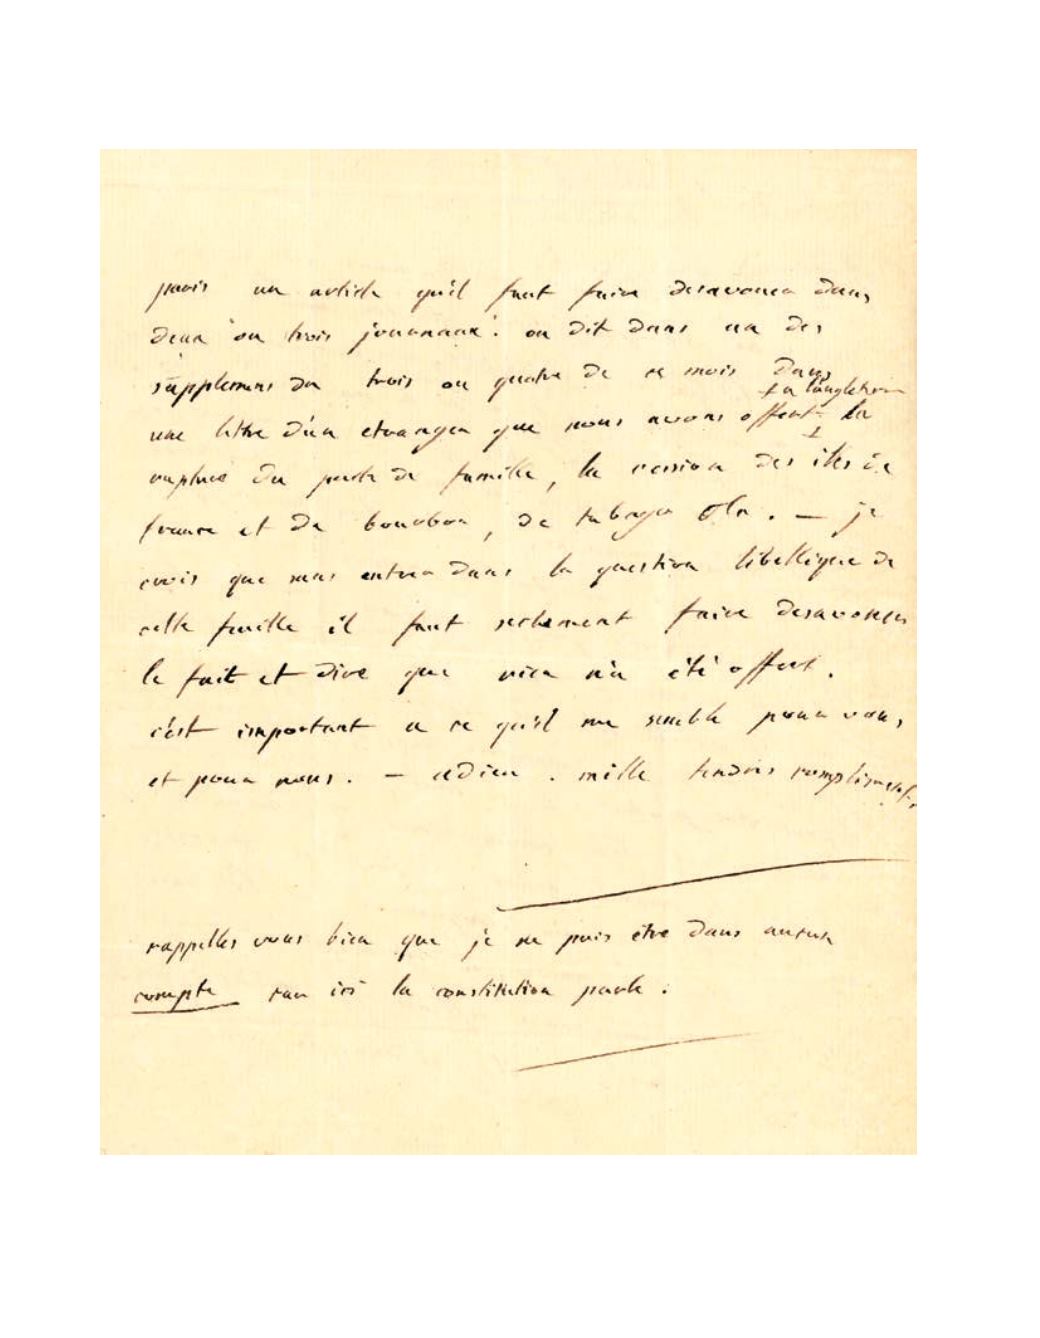 paris un article qu'il faut faire desavouer dans
deux ou trois journaux : on dit dans un des
supplemens du trois ou quatre de ce mois dans
+ a l'angleterre
une lettre d'un etranger que nous avons offert + la
rupture du pacte de famille, la cession des iles de
france et de bourbon, de tabago etc. — je
crois que sans entrer dans la question libellique de
cette feuille il faut sechement faire desavouer
le fait et dire que rien n'a été offert.
c'est important a ce qu'il me semble pour vous,
et pour nous. — adieu. mille tendres compliments,
rappelles vous bien que je ne puis être dans aucun
compte car ici la constitution parle.